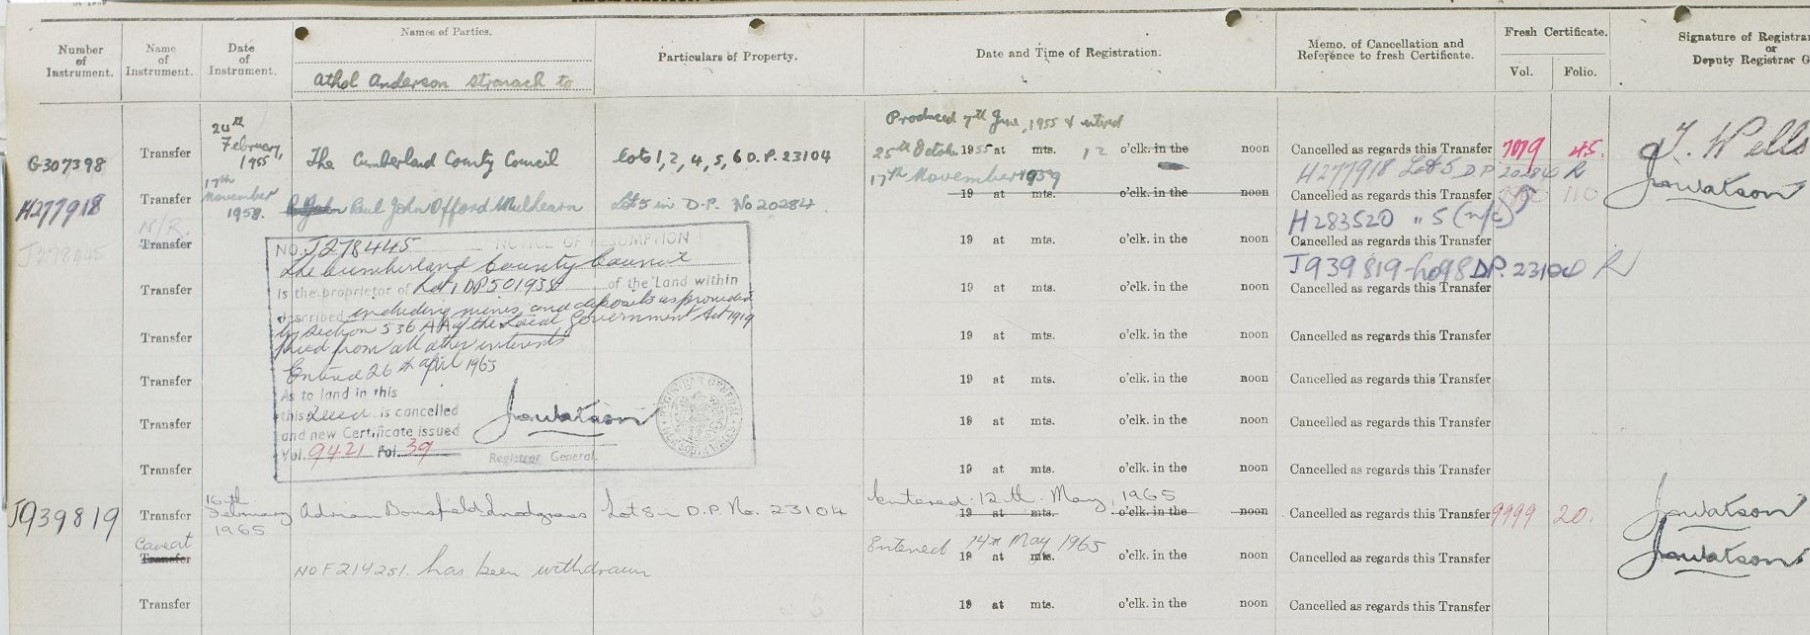 Number of Instrument. Name of Instrument. Date of Instrument. Names of Parties. Particulars of Property. Date and Time of Registration. Memo. of Cancellation and Reference to fresh Certificate. Fresh Certificate. Vol. Folio. Signature of Registrar or Deputy Registrar G
Athol Anderson Stronach to
Produced 7th June, 1955 & entered
G307398 Transfer 24th February, 1955 The Cumberland County Council Lots 1, 2, 4, 5, 6 D.P. 23104 25th October 1955 at mts. 12 o'clk. in the noon Cancelled as regards this Transfer 7079 45. J. Wells
H277918 Lot 5 D.P 20284 R
H277918 Transfer 17th November 1958. Paul John Offord Mulhearn Lot 5 in D.P. No 20284. 17th November 1959 19 at mts. o'clk. in the noon Cancelled as regards this Transfer 110 Jawatson
H283520 " 5 (n/c)
J278445 N/R. Transfer 19 at mts. o'clk. in the noon Cancelled as regards this Transfer
J939819 - Lot 8 D.P. 23104 R
NO. J278445 NOTICE OF RESUMPTION
The Cumberland County Council
is the proprietor of Lot 1 DP501938 of the Land within
described including mines and deposits as provided
by Section 536 AA of the Local Government Act 1919
freed from all other interests
Entered 26th April 1963
As to land in this
this Deed is cancelled
and new Certificate issued
Vol. 9421 Fol. 39
Jawatson
Registrar General.
REGISTRAR GENERAL NEW SOUTH WALES
Transfer 19 at mts. o'clk. in the noon Cancelled as regards this Transfer
Transfer 19 at mts. o'clk. in the noon Cancelled as regards this Transfer
Transfer 19 at mts. o'clk. in the noon Cancelled as regards this Transfer
Transfer 19 at mts. o'clk. in the noon Cancelled as regards this Transfer
Transfer 19 at mts. o'clk. in the noon Cancelled as regards this Transfer
Entered 12th May, 1965
J939819 Transfer 16th February 1965 Adrian Bousfield Snodgrass Lot 8 in D.P. No. 23104 19 at mts. o'clk. in the noon Cancelled as regards this Transfer 9999 20. Jawatson
Entered 14th May 1965
Caveat Transfer 19 at mts. o'clk. in the noon Cancelled as regards this Transfer Jawatson
No F214251. has been withdrawn
Transfer 19 at mts. o'clk. in the noon Cancelled as regards this Transfer